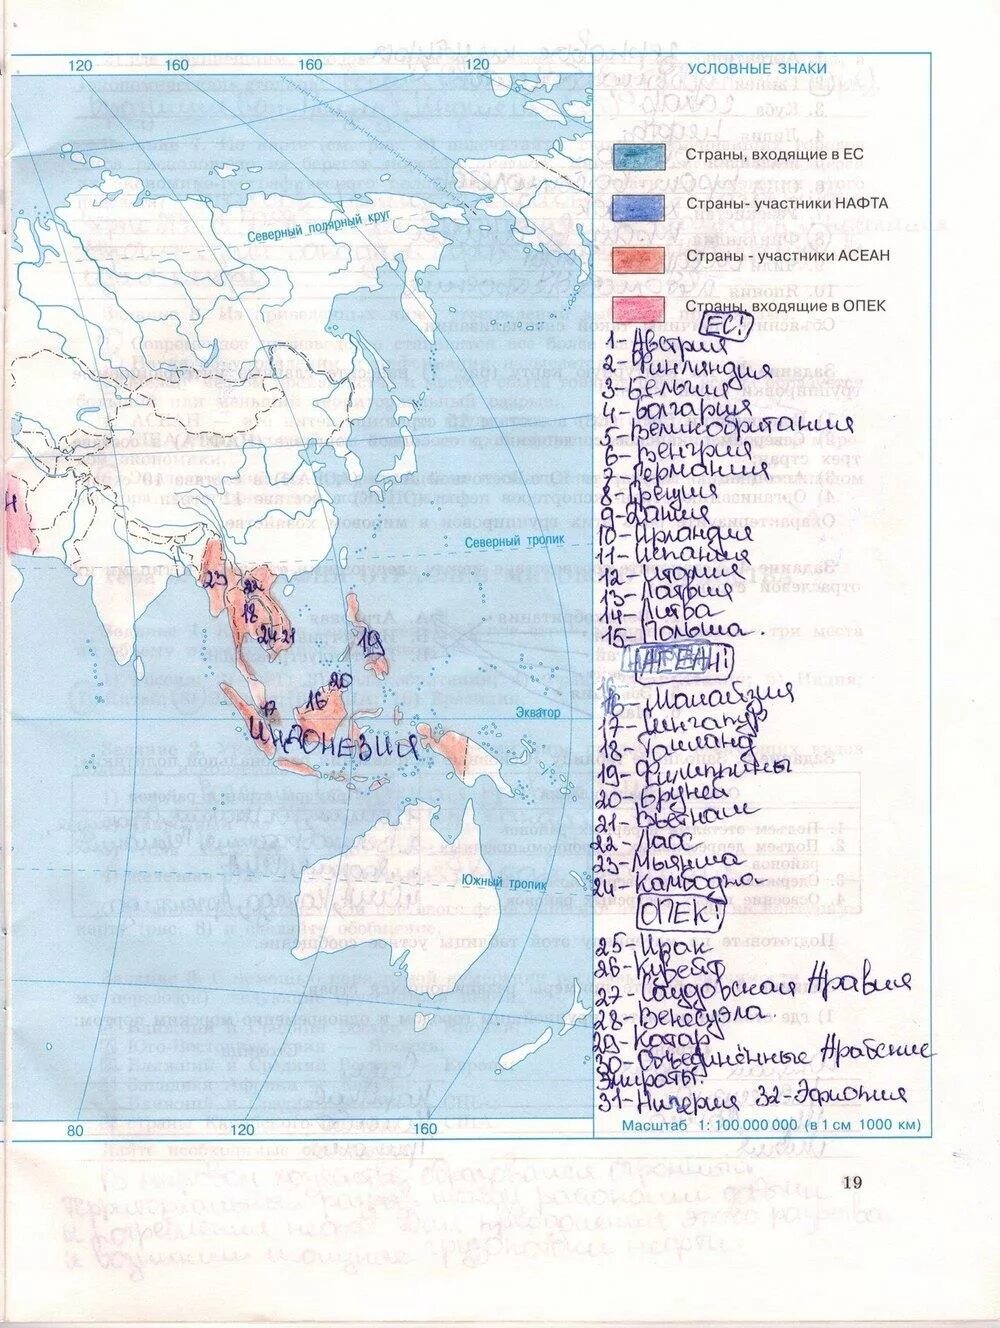 120 160 160 120
УСЛОВНЫЕ ЗНАКИ
Страны, входящие в ЕС
Страны- участники НАФТА
Страны - участники АСЕАН
Страны, входящие в ОПЕК
ЕС!
1-Австрия
2-Финляндия
3-Бельгия
4-Болгария
5-Великобритания
6-Венгрия
7-Германия
8-Греция
9-Дания
10-Ирландия
11-Испания
12-Италия
13-Латвия
14-Литва
15-Польша.
АСЕАН!
16-Малайзия
17-Сингапур
18-Таиланд
19-Филиппины
20-Бруней
21-Вьетнам
22-Лаос
23-Мьянма
24-Камбоджа
ОПЕК!
25-Ирак
26-Кувейт
27-Саудовская Аравия
28-Венесуэла.
29-Катар
30-Объединённые Арабские
Эмираты.
31-Нигерия 32-Эфиопия
Масштаб 1: 100 000 000 (в 1 см 1000 км)
Северный полярный круг
Северный тропик
23
22
18
24 21
19
20
16
17
Экватор
ИНДОНЕЗИЯ
Южный тропик
80 120 160
19